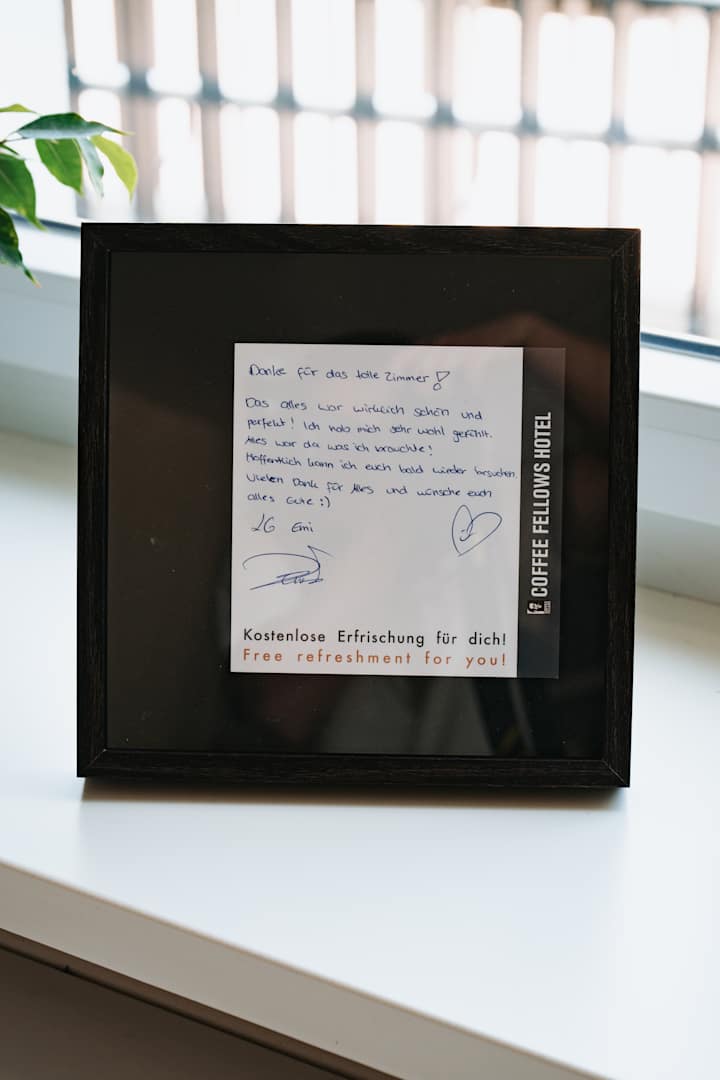 Danke für das tolle Zimmer!
Das alles war wirklich schön und
perfekt! Ich hab mich sehr wohl gefühlt.
Alles war da was ich brauchte!
Hoffentlich kann ich euch bald wieder besuchen.
Vielen Dank für Alles und wünsche euch
alles Gute :)
LG Emi
Kostenlose Erfrischung für dich!
Free refreshment for you!
COFFEE FELLOWS HOTEL